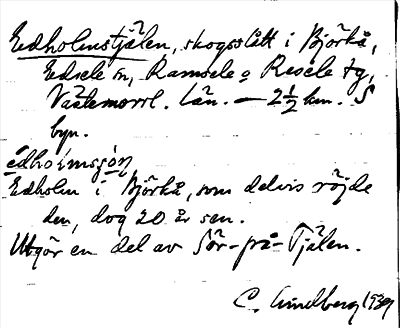 Edholmstjälen, skogsslått i Björkå,
Edsele sn, Ramsele o Resele tg,
Västernorrl. län. — 2½ km. S
byn.
edholmsşøn
Edholm i Björkå, som delvis röjde
den, dog 20 år sen.
Utgör en del av Sör-på-Tjälen.
C. Lindberg 1939